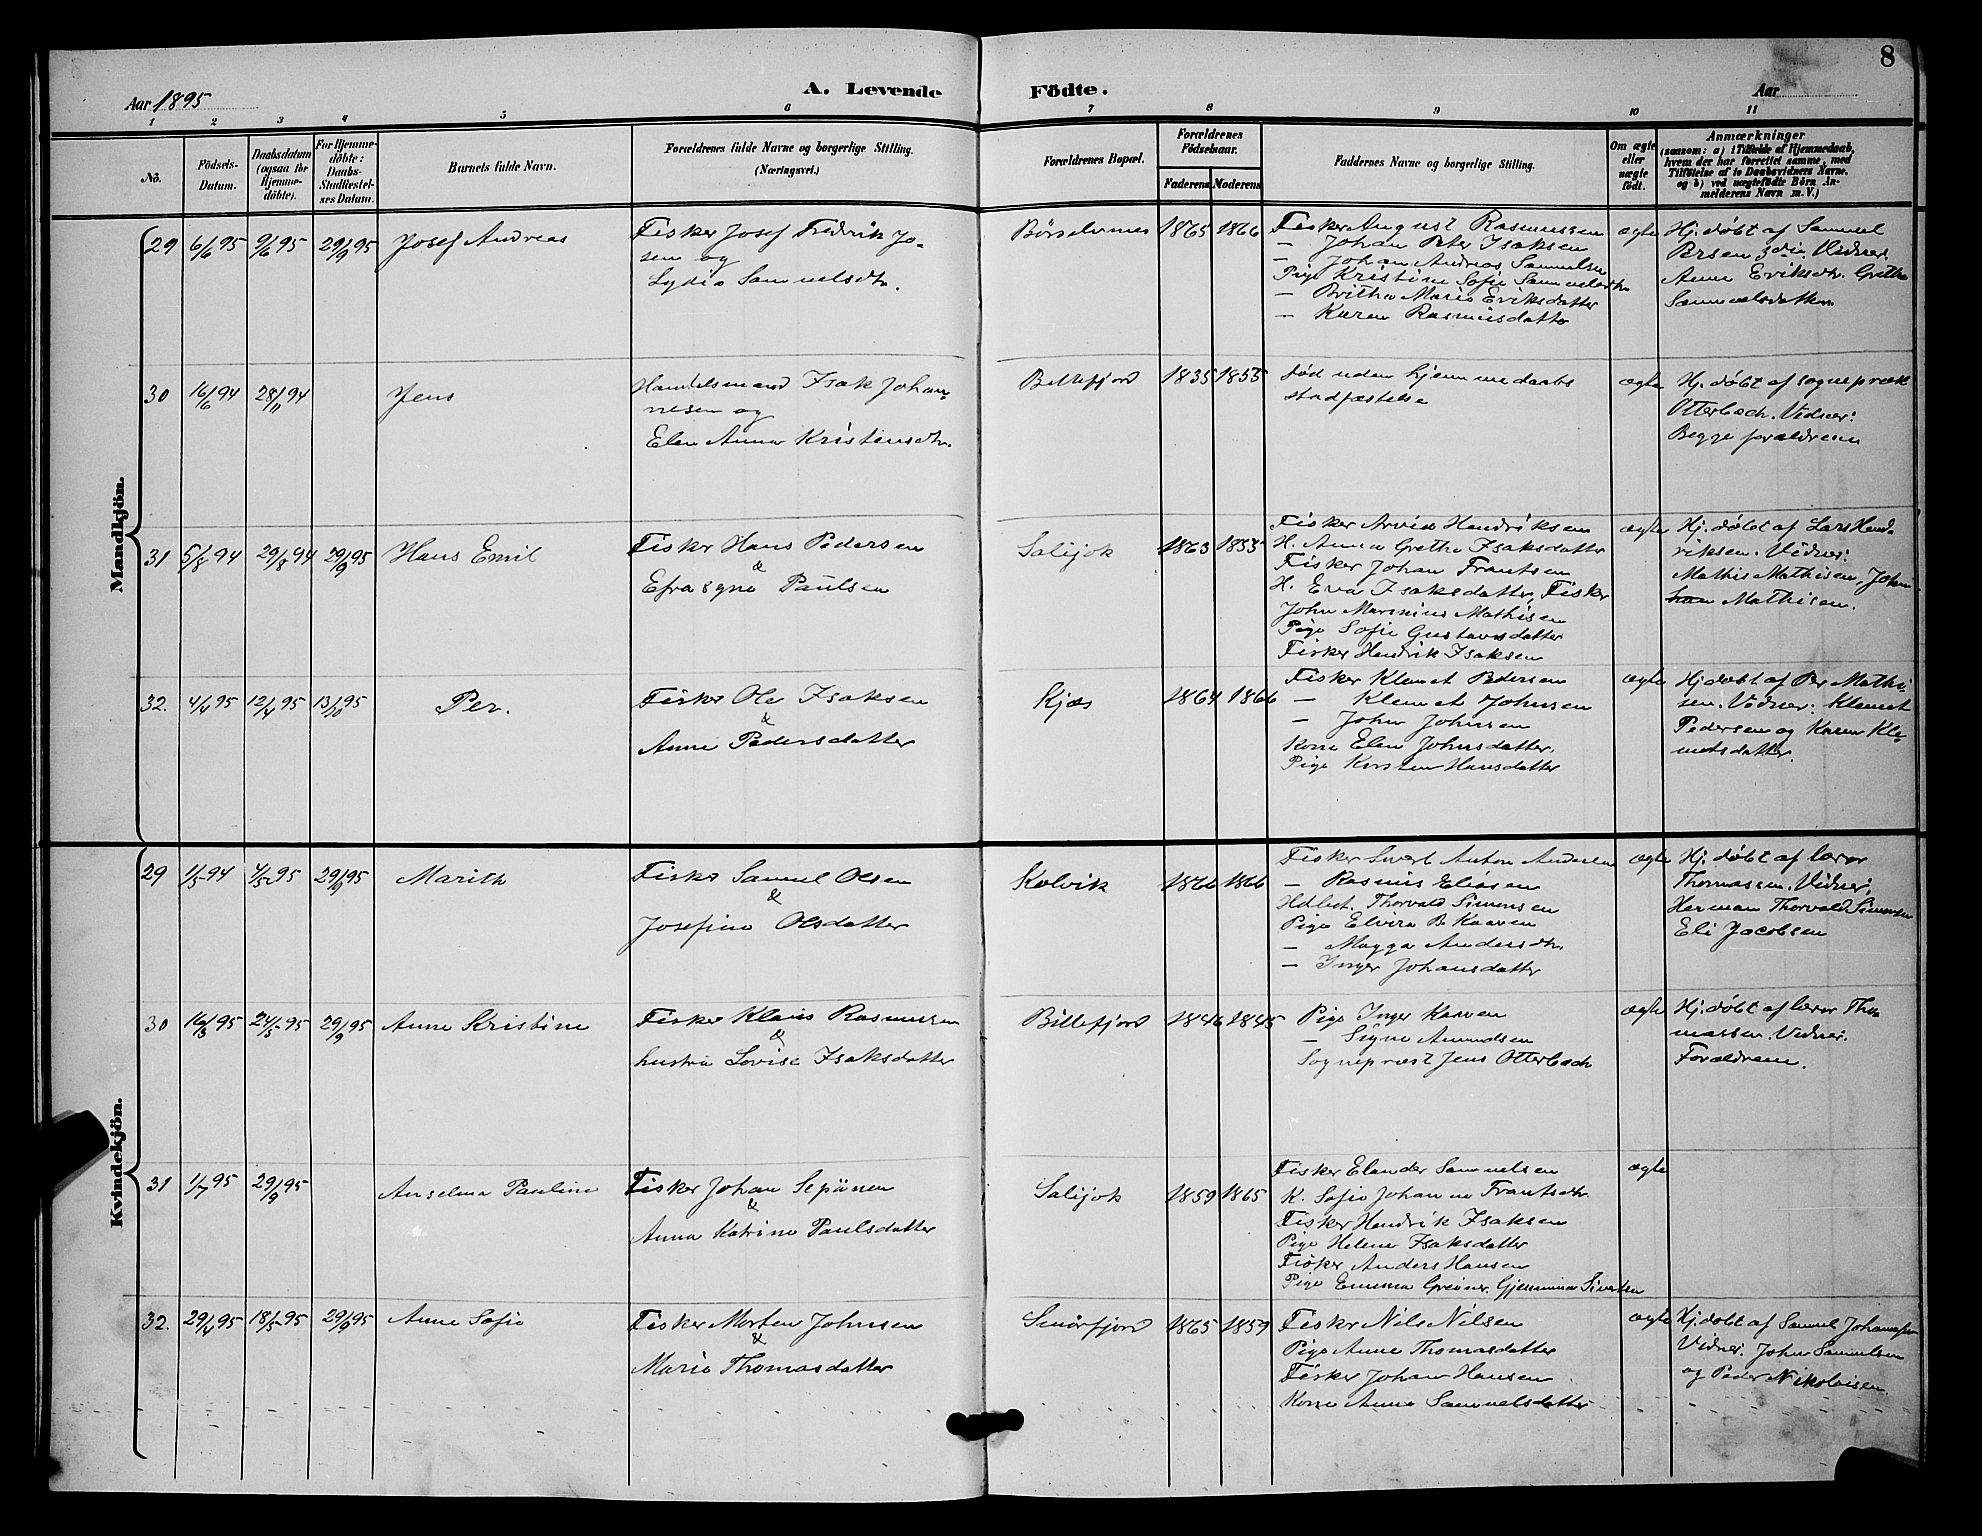 8
Aar 1895 A. Levende Födte. Aar
1 2 3 4 5 6 7 8 9 10 11
No.
Födsels-Datum.
Daabsdatum (ogsaa for Hjemme-döbte).
For Hjemme-döbte: Daabs-Stadfæstel-ses Datum.
Barnets fulde Navn.
Forældrenes fulde Navne og borgerlige Stilling.
(Næringsvei.)
Forældrenes Bopæl.
Forældrenes Födselsaar.
Faderens Moderens
Faddernes Navne og borgerlige Stilling.
Om ægte eller uægte födt.
Anmærkninger
(saasom: a) i Tilfælde af Hjemmedaab,
hvem der har forrettet samme, med
Tilföielse af to Daabsvidners Navne.
og b) ved uægtefödte Börn An-
melderens Navn m. V.)
Mandkjön.
29 6/6 95 9/6 95 29/9 95 Josef Andreas
Fisker Josef Fredrik Jo-
sen og
Lydia Samuelsdtr.
Börselvnes 1865 1866
Fisker August Rasmussen
— Johan Peter Isaksen
— Johan Andreas Samuelsen
Pige Kristine Sofie Samuelsdtr
— Britha Maria Eriksdatter
— Karen Rasmusdatte
ægte
Hj. døbt af Samuel
Persen Vidner.
Anna Eriksdtr. Grethe
Samuelsdatter.
30 16/6 94 28/11 94 Jens
Handelsmand Isak Johan-
nesen og
Elen Anna Kristensdtr.
Billefjord 1835 1855
død uden hjemmedaabs
stadfæstelse
ægte
Hj. døbt af sognepræk
Otterbech. Vidner:
Begge forældrene
31 5/8 94 29/8 94 29/9 95 Hans Emil
Fisker Hans Pedersen
&
Efrosyne Paulsen
Salijok 1863 1855
Fisker Arvid Hendriksen
H. Anna Grethe Isaksdatter
Fisker Johan Frantsen
H. Eva Isaksdatter, Fisker
John Marenius Mathisen
Pige Sofie Gustavsdatter
Fisker Hendrik Isaksen
ægte
Hj. døbt af Lars Hend-
riksen. Vidner:
Mathis Mathisen, Johan
Mathisen.
32. 4/4 95 12/4 95 13/10 95 Per.
Fisker Ole Isaksen
&
Anne Pedersdatter
Kjæs 1864 1866
Fisker Klemet Pedersen
— Klemet Johnsen
— John Johnsen
Kone Elen Johnsdatter.
Pige Kirsten Hansdatter
ægte
Hj. døbt af Per Mathi-
sen. Vidner: Klemet
Pedersen og Karen Kle-
metsdatter.
Kvindekjön.
29 1/5 94 4/5 95 29/9 95 Marith
Fisker Samuel Olsen
&
Josefine Olsdatter
Kolvik 1866 1866
Fisker Sivert Anton Andersen
— Rasmus Eliasen
Hdlbet. Thorvald Simonsen
Pige Elvira B. Kaaven
— Magga Andersdtr.
— Inger Johansdatter
ægte
Hj. døbt af lærer
Thomassen. Vidner.
Herman Thorvald Simonsen
Eli Jacobsen
30 16/3 95 24/5 95 29/9 95 Anne Kristine
Fisker Klaus Rasmussen
&
hustru Lovise Isaksdatter
Billefjord 1846 1845
Pige Inger Kaaven
— Signe Amundsen
Sogneprest Jens Otterbech
ægte
Hj. døbt af lærer Tho-
massen. Vidner.
Forældrene.
31 1/7 95 29/9 95 Anselma Pauline
Fisker Johan Sepänen
&
Anna Katrine Paulsdatter
Salijok 1859 1865
Fisker Elander Samuelsen
K. Sofie Johanne Frantsdtr.
Fisker Hendrik Isaksen
Pige Helene Isaksdatter
Fisker Anders Hansen
Pige Emma Greiner. Gjemina Sivertsen
ægte
32. 29/4 95 18/5 95 29/9 95 Anne Sofie
Fisker Morten Johnsen
&
Maria Thomasdatter
Smörfjord 1865 1859
Fisker Nils Nilsen
Pige Anne Thomasdatter
Fisker Johan Hansen
Kone Anna Samuelsdatter
ægte
Hj. døbt af Samuel Johansen
Vidner. John Samuelsen
og Peder Nikolaisen.